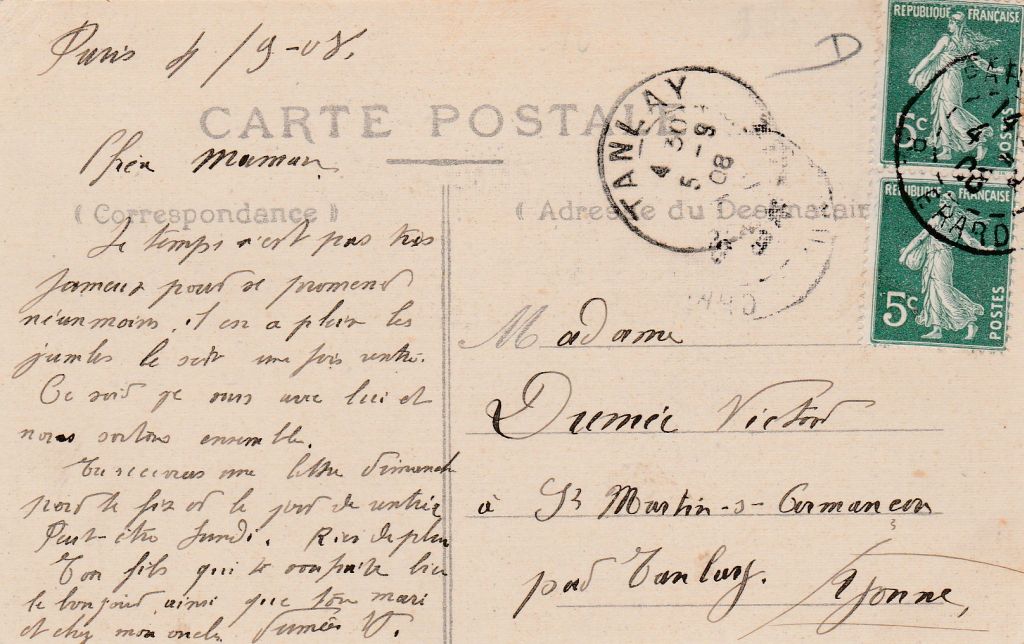 Paris 4/9-08.
D
CARTE POSTALE
Chère Maman
(Correspondance)
(Adresse du Destinataire
Le temps n'est pas très
fameux pour se promener
néanmoins il en a plein les
jambes le soir une fois rentré.
Ce soir je suis avec lui et
nous sortons ensemble.
Tu recevras une lettre dimanche
pour te fixer le jour de rentrée
Peut-être Lundi. Rien de plus
Ton fils qui te souhaite bien
le bonjour ainsi que ton mari
et chez mon oncle Dumée V.
Madame
Dumée Victor
à St Martin-s-Armançon
par Tanlay.
Yonne,
TANLAY
4 30
5 -9
08
REPUBLIQUE FRANÇAISE
5c
POSTES
GAR
4
08
REPUBLIQUE FRANÇAISE
5c
POSTES